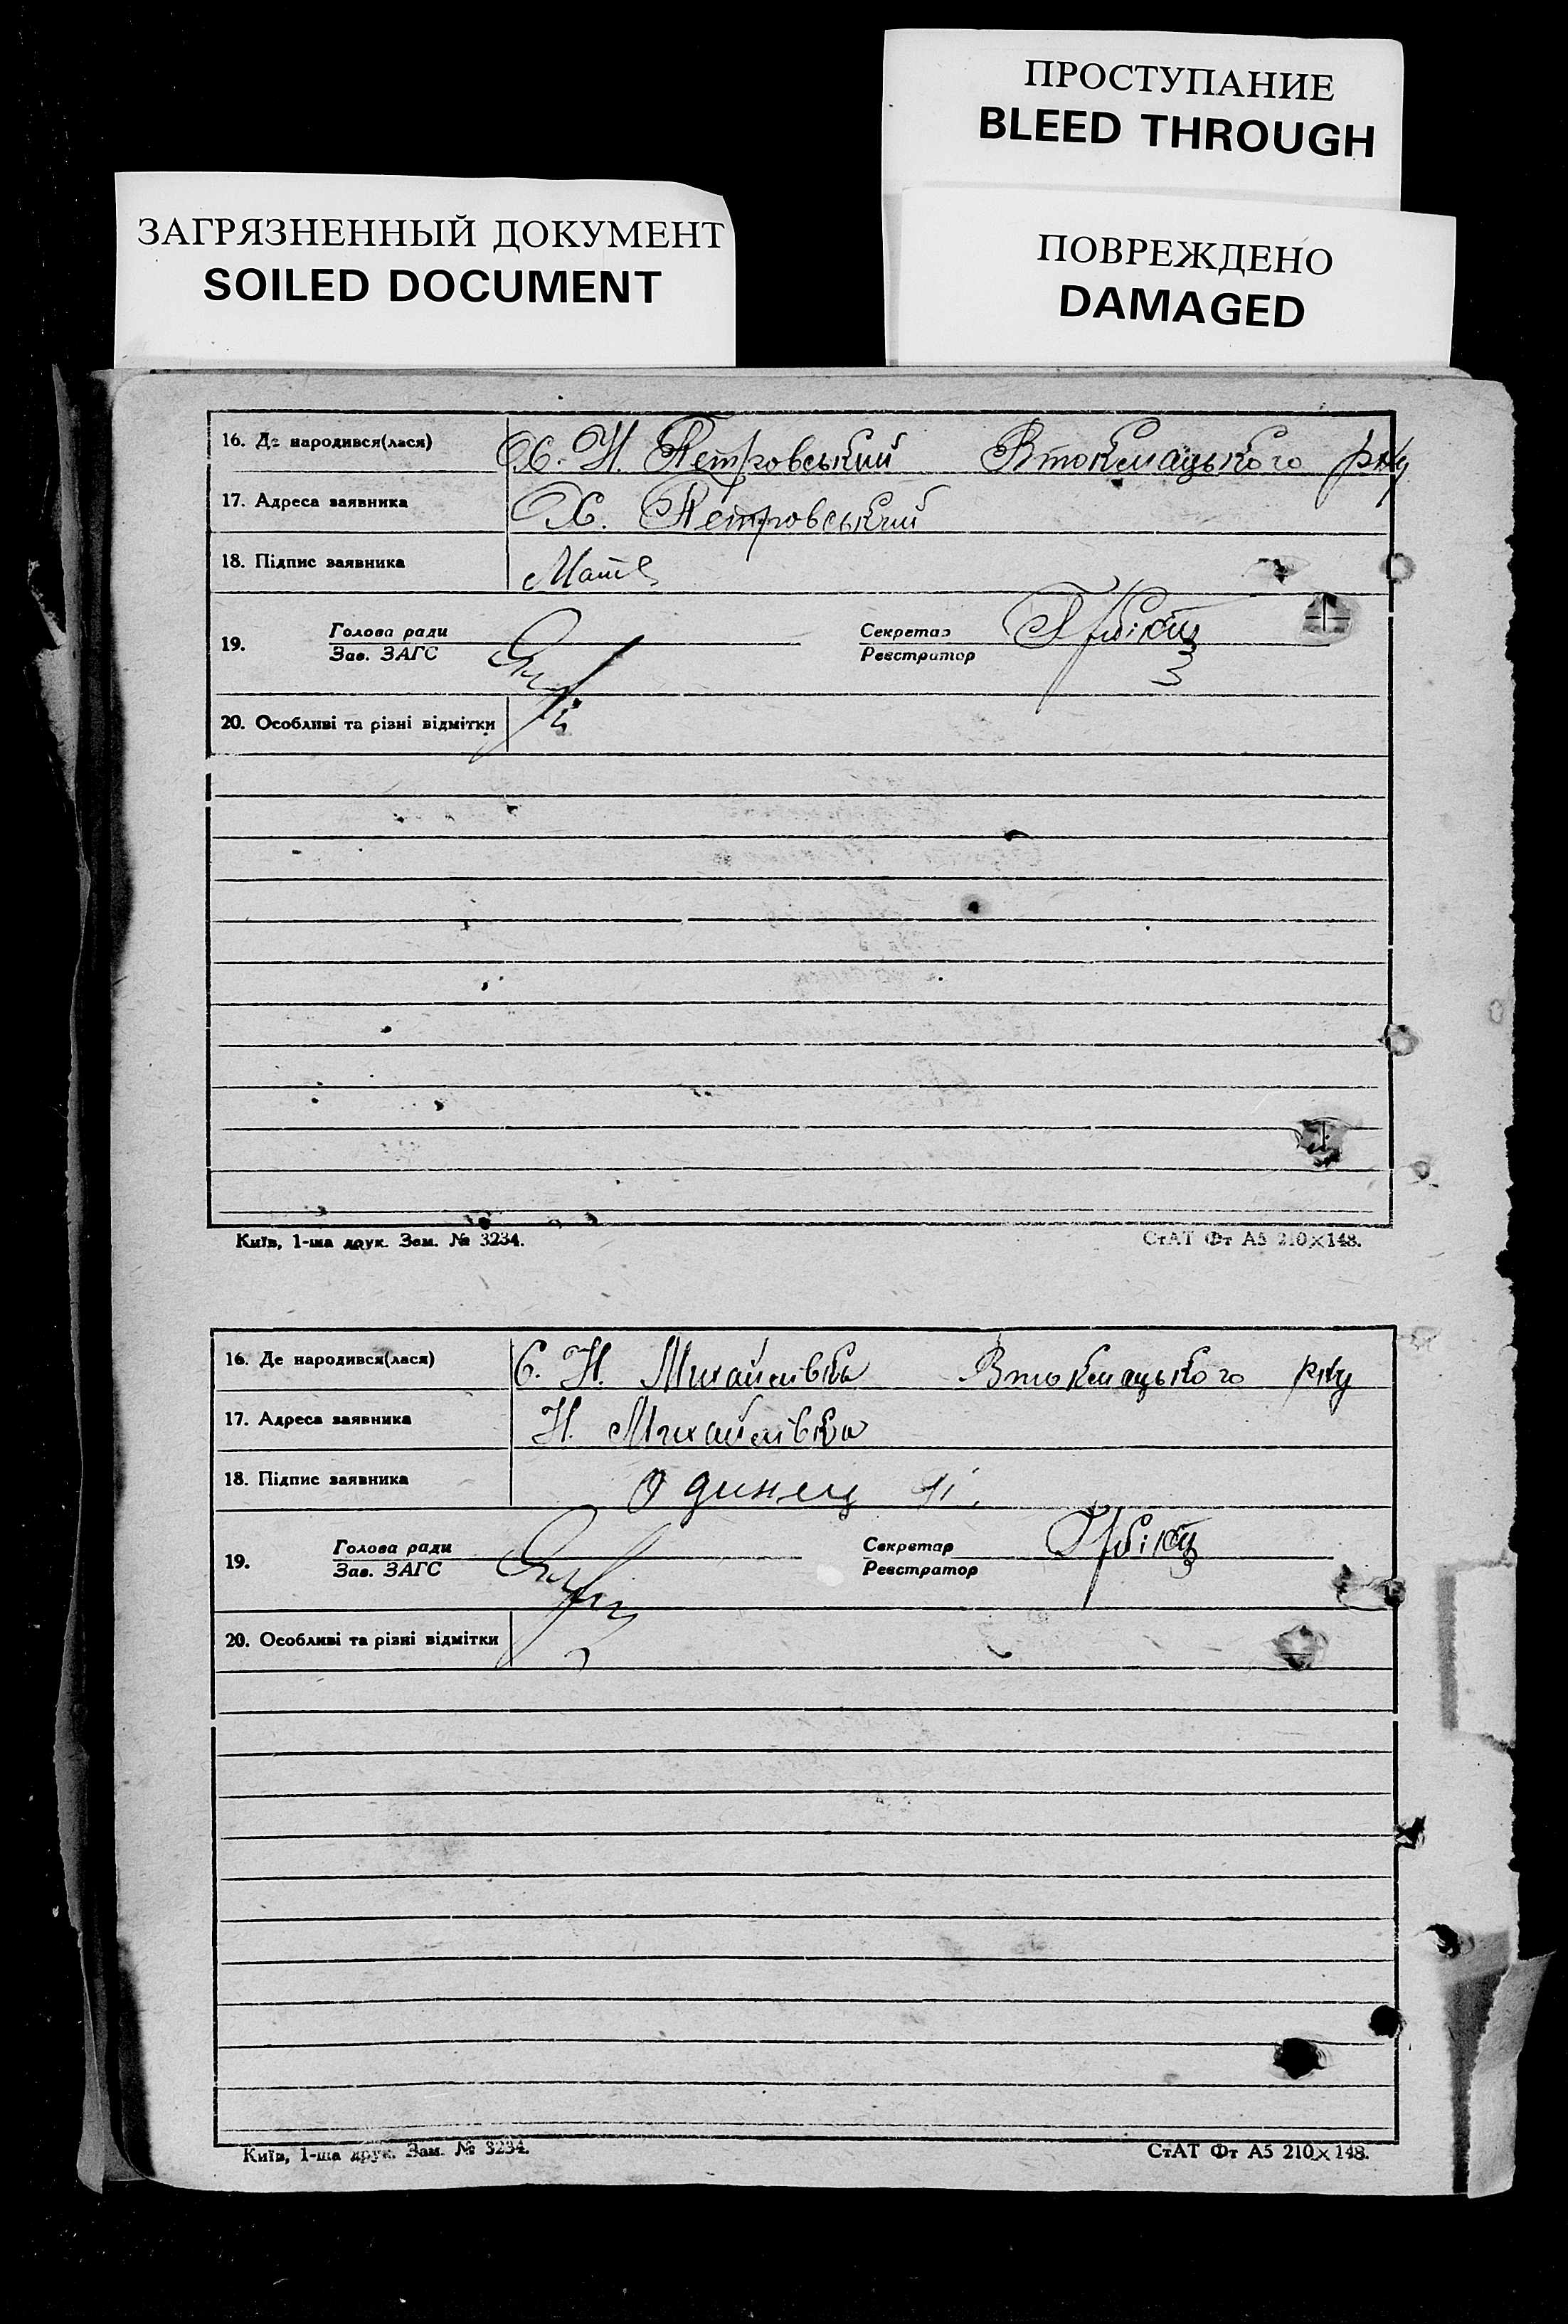 ПРОСТУПАНИЕ
BLEED THROUGH
ЗАГРЯЗНЕННЫЙ ДОКУМЕНТ
SOILED DOCUMENT
ПОВРЕЖДЕНО
DAMAGED
16. Де народився(лася) Х. Н. Петровський Втокмацького р-ну
17. Адреса заявника Х. Петровський
18. Підпис заявника
19. Голова ради Секретар
Зав. ЗАГС Реєстратор
20. Особливі та різні відмітки
Київ, 1-ша друк. Зам. № 3234. СтАТ Фт А5 210×148.
16. Де народився(лася) С. Н. Михайлівка Втокмацького р-ну
17. Адреса заявника Н. Михайлівка
18. Підпис заявника Одинец
19. Голова ради Секретар
Зав. ЗАГС Реєстратор
20. Особливі та різні відмітки
Київ, 1-ша друк. Зам. № 3234. СтАТ Фт А5 210×148.